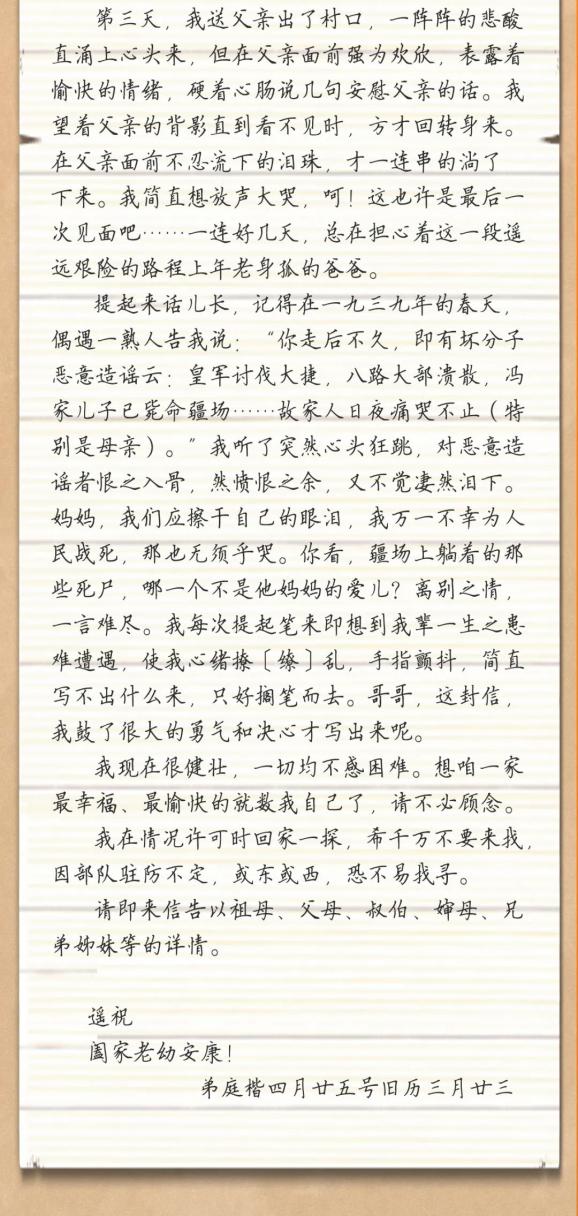 第三天，我送父亲出了村口，一阵阵的悲酸
直涌上心头来，但在父亲面前强为欢欣，表露着
愉快的情绪，硬着心肠说几句安慰父亲的话。我
望着父亲的背影直到看不见时，方才回转身来。
在父亲面前不忍流下的泪珠，才一连串的淌了
下来。我简直想放声大哭，呵！这也许是最后一
次见面吧……一连好几天，总在担心着这一段遥
远艰险的路程上年老身孤的爸爸。
提起来话儿长，记得在一九三九年的春天，
偶遇一熟人告我说：“你走后不久，即有坏分子
恶意造谣云：皇军讨伐大捷，八路大部溃散，冯
家儿子已毙命疆场……故家人日夜痛哭不止（特
别是母亲）。”我听了突然心头狂跳，对恶意造
谣者恨之入骨，然愤恨之余，又不觉凄然泪下。
妈妈，我们应擦干自己的眼泪，我万一不幸为人
民战死，那也无须乎哭。你看，疆场上躺着的那
些死尸，哪一个不是他妈妈的爱儿？离别之情，
一言难尽。我每次提起笔来即想到我辈一生之患
难遭遇，使我心绪撩〔缭〕乱，手指颤抖，简直
写不出什么来，只好搁笔而去。哥哥，这封信，
我鼓了很大的勇气和决心才写出来呢。
我现在很健壮，一切均不感困难。想咱一家
最幸福、最愉快的就数我自己了，请不必顾念。
我在情况许可时回家一探，希千万不要来找，
因部队驻防不定，或东或西，恐不易找寻。
请即来信告以祖母、父母、叔伯、婶母、兄
弟姊妹等的详情。
遥祝
阖家老幼安康！
弟庭楷四月廿五号旧历三月廿三